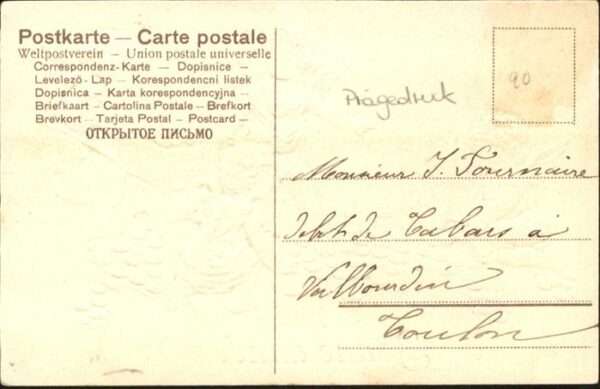 Postkarte — Carte postale
Weltpostverein – Union postale universelle
Correspondenz-Karte – Dopisnice –
Levelező-Lap – Korespondencni listek
Dopisnica – Karta korespondencyjna –
Briefkaart – Cartolina Postale – Brefkort
Brevkort – Tarjeta Postal – Postcard –
ОТКРЫТОЕ ПИСЬМО
20
Prägedruk
Monsieur J. Tournaire
debt de Tabacs à
Valbourdin
Toulon